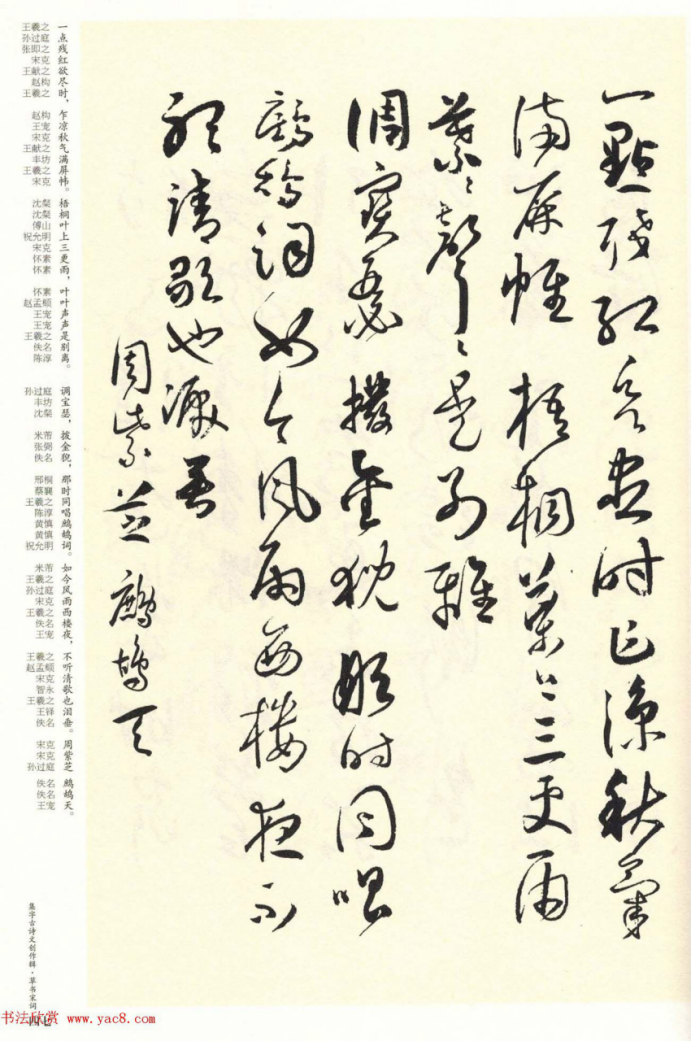 一點殘紅欲盡時乍涼秋氣
滿屏幃梧桐葉上三更雨
葉〻聲〻是別離
調寶瑟撥金猊那時同唱
鷓鴣詞如今風雨西樓夜不
聽清歌也淚垂
周紫芝鷓鴣天
一点残红欲尽时，
乍凉秋气满屏帏。
梧桐叶上三更雨，
叶叶声声是别离。
调宝瑟，
拨金猊，
那时同唱鹧鸪词。
如今风雨西楼夜，
不听清歌也泪垂。
周紫芝
鹧鸪天。
王羲之
孙过庭
张即之
宋克
王献之
赵构
王羲之
赵构
王宠
宋克
王献之
丰坊
王羲之
宋克
沈粲
沈粲
傅山
祝允明
宋克
怀素
怀素
怀素
赵孟頫
王宠
王宠
王羲之
佚名
陈淳
孙过庭
丰坊
沈粲
米芾
张弼
佚名
邢侗
蔡襄
王羲之
陈淳
黄慎
黄慎
祝允明
米芾
王羲之
孙过庭
宋克
王羲之
佚名
王宠
王羲之
赵孟頫
宋克
智永
王羲之
王铎
佚名
宋克
宋克
孙过庭
佚名
佚名
王宠
集字古诗文创作辑·草书宋词
四七
书法欣赏 www.yac8.com